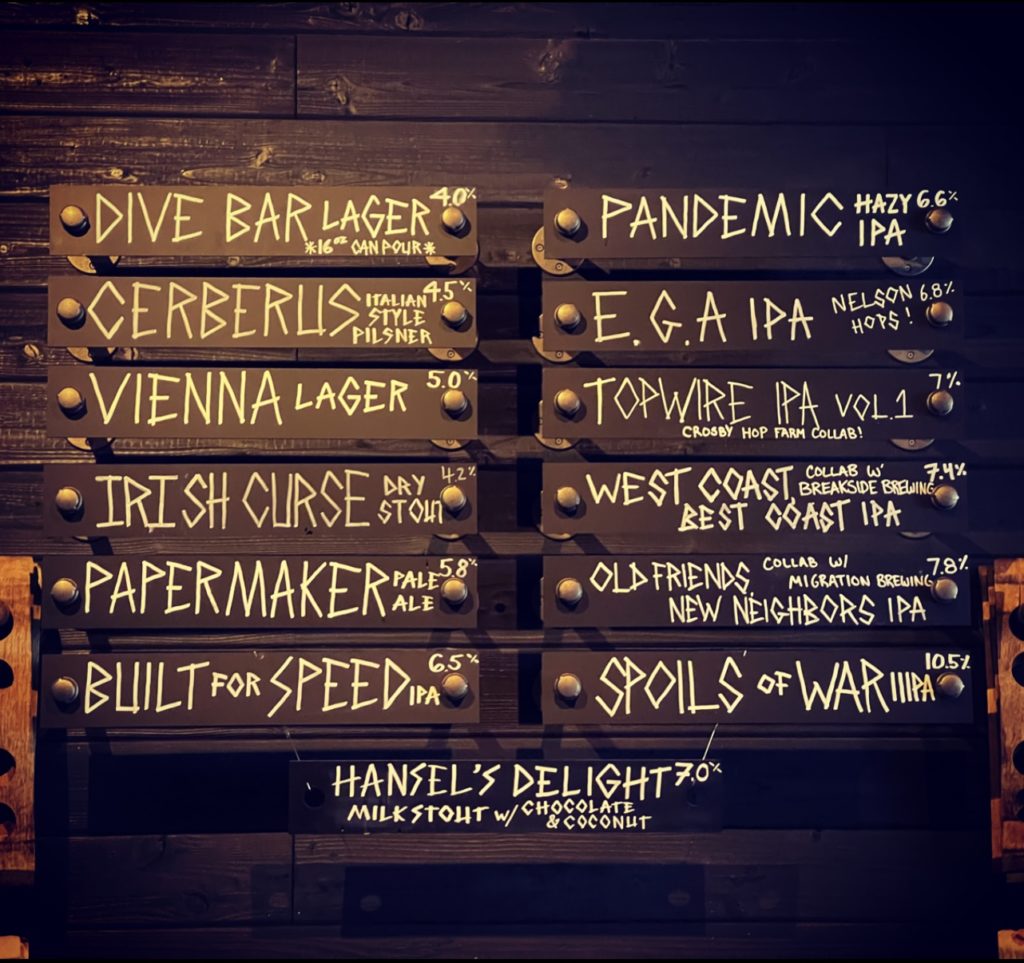 DIVE BAR LAGER 4.0%
*16oz CAN POUR*
CERBERUS ITALIAN STYLE PILSNER 4.5%
VIENNA LAGER 5.0%
IRISH CURSE DRY STOUT 4.2%
PAPERMAKER PALE ALE 5.8%
BUILT FOR SPEED IPA 6.5%
PANDEMIC HAZY IPA 6.6%
E.G.A IPA NELSON HOPS! 6.8%
TOPWIRE IPA VOL.1 7%
CROSBY HOP FARM COLLAB!
WEST COAST, COLLAB W/ BREAKSIDE BREWING 7.4%
BEST COAST IPA
OLD FRIENDS, COLLAB W/ MIGRATION BREWING 7.8%
NEW NEIGHBORS IPA
SPOILS OF WAR IIIPA 10.5%
HANSEL'S DELIGHT 7.0%
MILK STOUT W/ CHOCOLATE & COCONUT